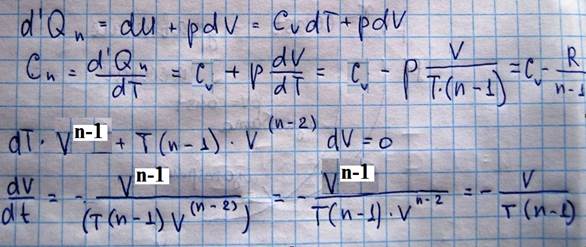 d'Qₙ = dU + pdV = CᵥdT + pdV
Cₙ = d'Qₙ/dT = Cᵥ + p dV/dT = Cᵥ - p V/(T·(n-1)) = Cᵥ - R/(n-1)
dT · Vⁿ⁻¹ + T(n-1) · V⁽ⁿ⁻²⁾ dV = 0
dV/dt = - Vⁿ⁻¹/(T(n-1)V⁽ⁿ⁻²⁾) = - Vⁿ⁻¹/(T(n-1)·Vⁿ⁻²) = - V/(T(n-1))